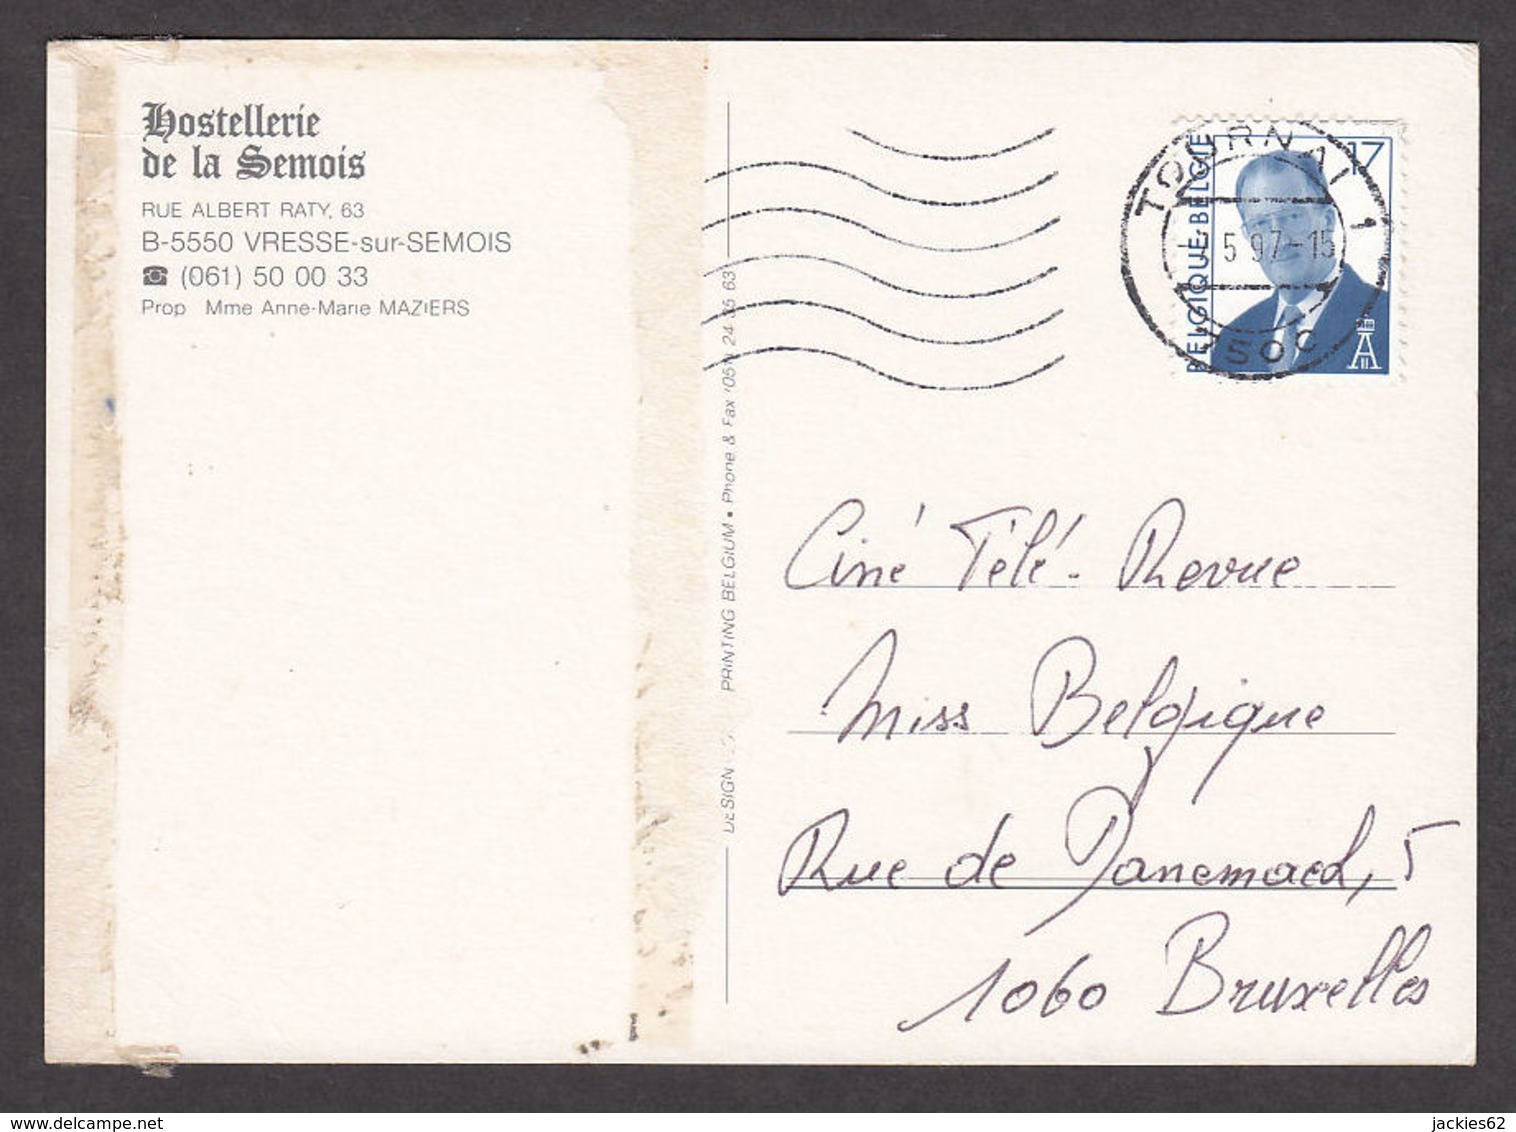 Hostellerie
de la Semois
RUE ALBERT RATY, 63
B-5550 VRESSE-sur-SEMOIS
☎ (061) 50 00 33
Prop Mme Anne-Marie MAZIERS
DESIGN
PRINTING BELGIUM • Phone & Fax
BELGIQUE-BELGIE
17
TOURNAI 1
5 97-15
Ciné Télé-Revue
Miss Belgique
Rue de Danemark, 5
1060 Bruxelles
delcampe.net
jackies62